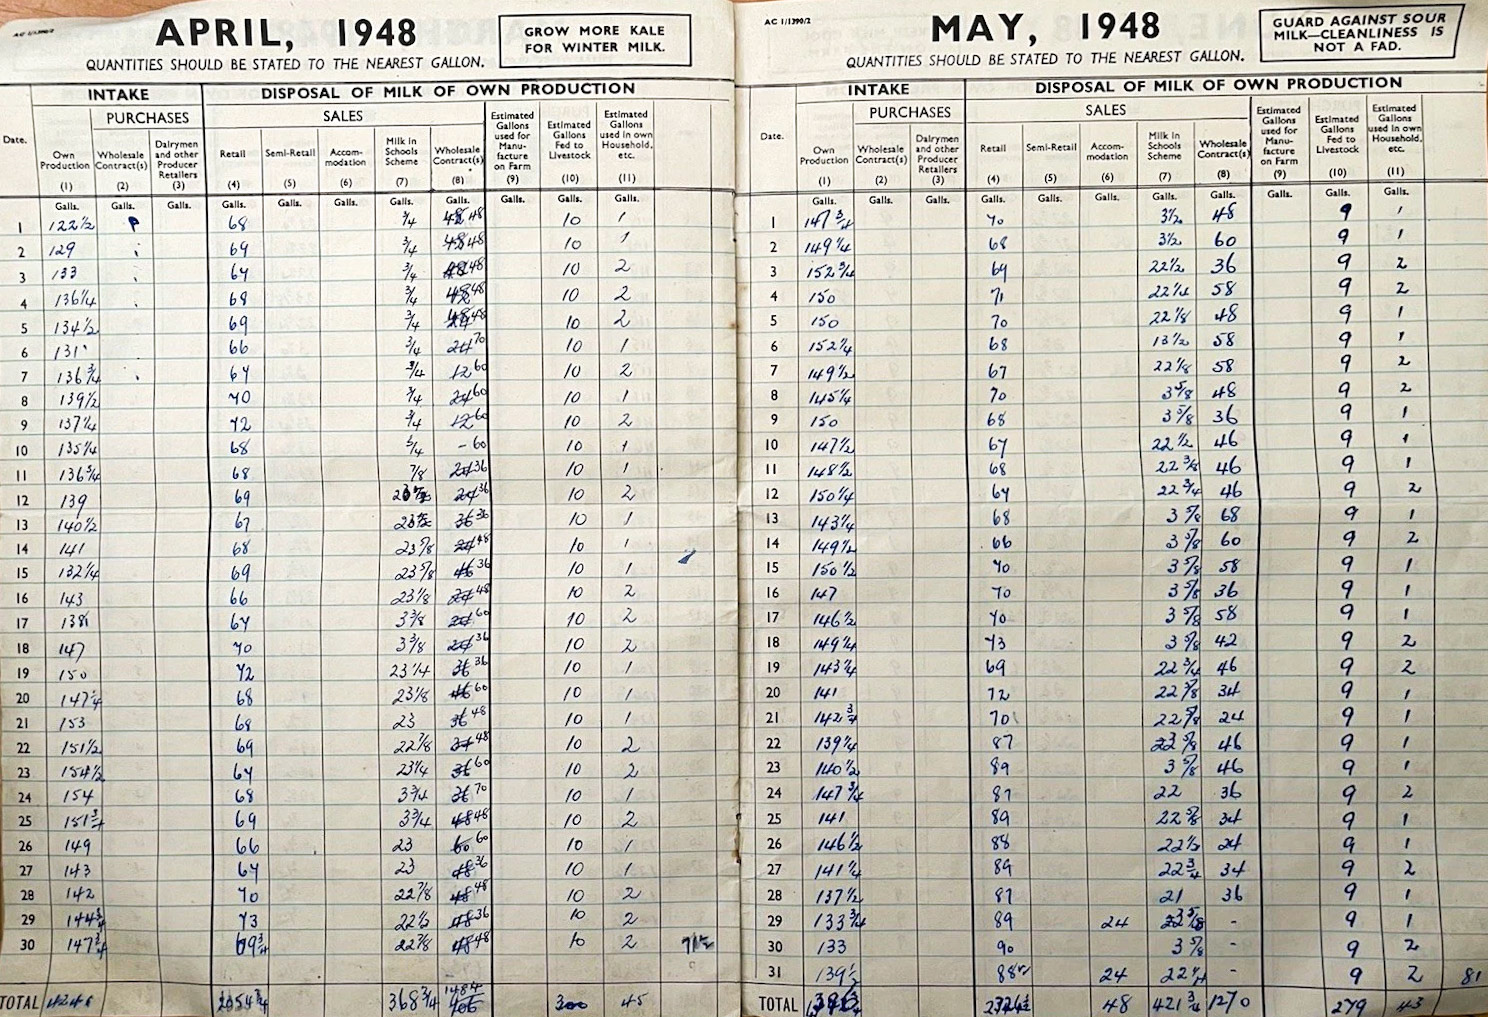 AC 1/1390/2
APRIL, 1948
GROW MORE KALE
FOR WINTER MILK.
QUANTITIES SHOULD BE STATED TO THE NEAREST GALLON.
INTAKE DISPOSAL OF MILK OF OWN PRODUCTION
PURCHASES SALES
Date. Own Production (1) Wholesale Contract(s) (2) Dairymen and other Producer Retailers (3) Retail (4) Semi-Retail (5) Accommodation (6) Milk in Schools Scheme (7) Wholesale Contract(s) (8) Estimated Gallons used for Manufacture on Farm (9) Estimated Gallons Fed to Livestock (10) Estimated Gallons used in own Household, etc. (11)
Galls. Galls. Galls. Galls. Galls. Galls. Galls. Galls. Galls. Galls. Galls.
1 122½ 68 ¾ 48 10 1
2 129 69 ¾ 48 10 1
3 133 67 ¾ 48 10 2
4 136¼ 68 ¾ 48 10 2
5 134½ 69 ¾ 48 10 2
6 131 66 ¾ 70 10 1
7 136¾ 67 ¾ 60 10 2
8 139½ 70 ¾ 60 10 1
9 137¼ 72 ¾ 60 10 2
10 135¼ 68 60 10 1
11 136¾ 68 ⅞ 36 10 1
12 139 69 36 10 2
13 140½ 67 36 10 1
14 141 68 23⅞ 48 10 1
15 132¼ 69 23⅝ 36 10 1
16 143 66 23⅛ 48 10 2
17 67 3⅜ 60 10 2
18 147 70 3⅜ 36 10 2
19 150 72 23¼ 36 10 1
20 147¼ 68 23⅛ 60 10 1
21 153 68 23 48 10 1
22 151½ 69 22⅞ 48 10 2
23 154½ 67 23¼ 60 10 2
24 154 68 3¾ 70 10 1
25 151¾ 69 3¾ 48 10 2
26 149 66 23 60 10 1
27 143 67 23 36 10 1
28 142 70 22⅞ 48 10 2
29 144¾ 73 22½ 36 10 2
30 147¾ 69¾ 22⅞ 48 10 2
TOTAL 368¾ 1484 300 45
AC 1/1390/2
MAY, 1948
GUARD AGAINST SOUR
MILK—CLEANLINESS IS
NOT A FAD.
QUANTITIES SHOULD BE STATED TO THE NEAREST GALLON.
INTAKE DISPOSAL OF MILK OF OWN PRODUCTION
PURCHASES SALES
Date. Own Production (1) Wholesale Contract(s) (2) Dairymen and other Producer Retailers (3) Retail (4) Semi-Retail (5) Accommodation (6) Milk in Schools Scheme (7) Wholesale Contract(s) (8) Estimated Gallons used for Manufacture on Farm (9) Estimated Gallons Fed to Livestock (10) Estimated Gallons used in own Household, etc. (11)
Galls. Galls. Galls. Galls. Galls. Galls. Galls. Galls. Galls. Galls. Galls.
1 147¾ 70 3½ 48 9 1
2 149¼ 68 3½ 60 9 1
3 152¾ 69 22½ 36 9 2
4 150 71 22¼ 58 9 2
5 150 70 22⅛ 48 9 1
6 152¼ 68 13½ 58 9 1
7 149½ 67 22⅛ 58 9 2
8 145¼ 70 3⅝ 48 9 2
9 150 68 3⅝ 36 9 1
10 147½ 67 22½ 46 9 1
11 148½ 68 22⅜ 46 9 1
12 150¼ 67 22¾ 46 9 2
13 143¼ 68 3⅝ 68 9 1
14 149½ 66 3⅝ 60 9 2
15 150½ 70 3⅝ 58 9 1
16 147 70 3⅝ 36 9 1
17 146½ 70 3⅝ 58 9 1
18 149¼ 73 3⅝ 42 9 2
19 143¼ 69 22¾ 46 9 2
20 141 72 22⅞ 34 9 1
21 142¾ 70 22⅝ 24 9 1
22 139¼ 87 46 9 1
23 140½ 89 3⅝ 46 9 1
24 147¾ 87 22 36 9 2
25 141 89 22⅝ 34 9 1
26 146½ 88 22½ 24 9 1
27 141¼ 89 22¾ 34 9 2
28 137½ 87 21 36 9 1
29 133¾ 89 24 - 9 1
30 133 90 3⅝ - 9 2
31 139½ 88 24 22¼ - 9 2 81
TOTAL 48 421¾ 1270 279 43